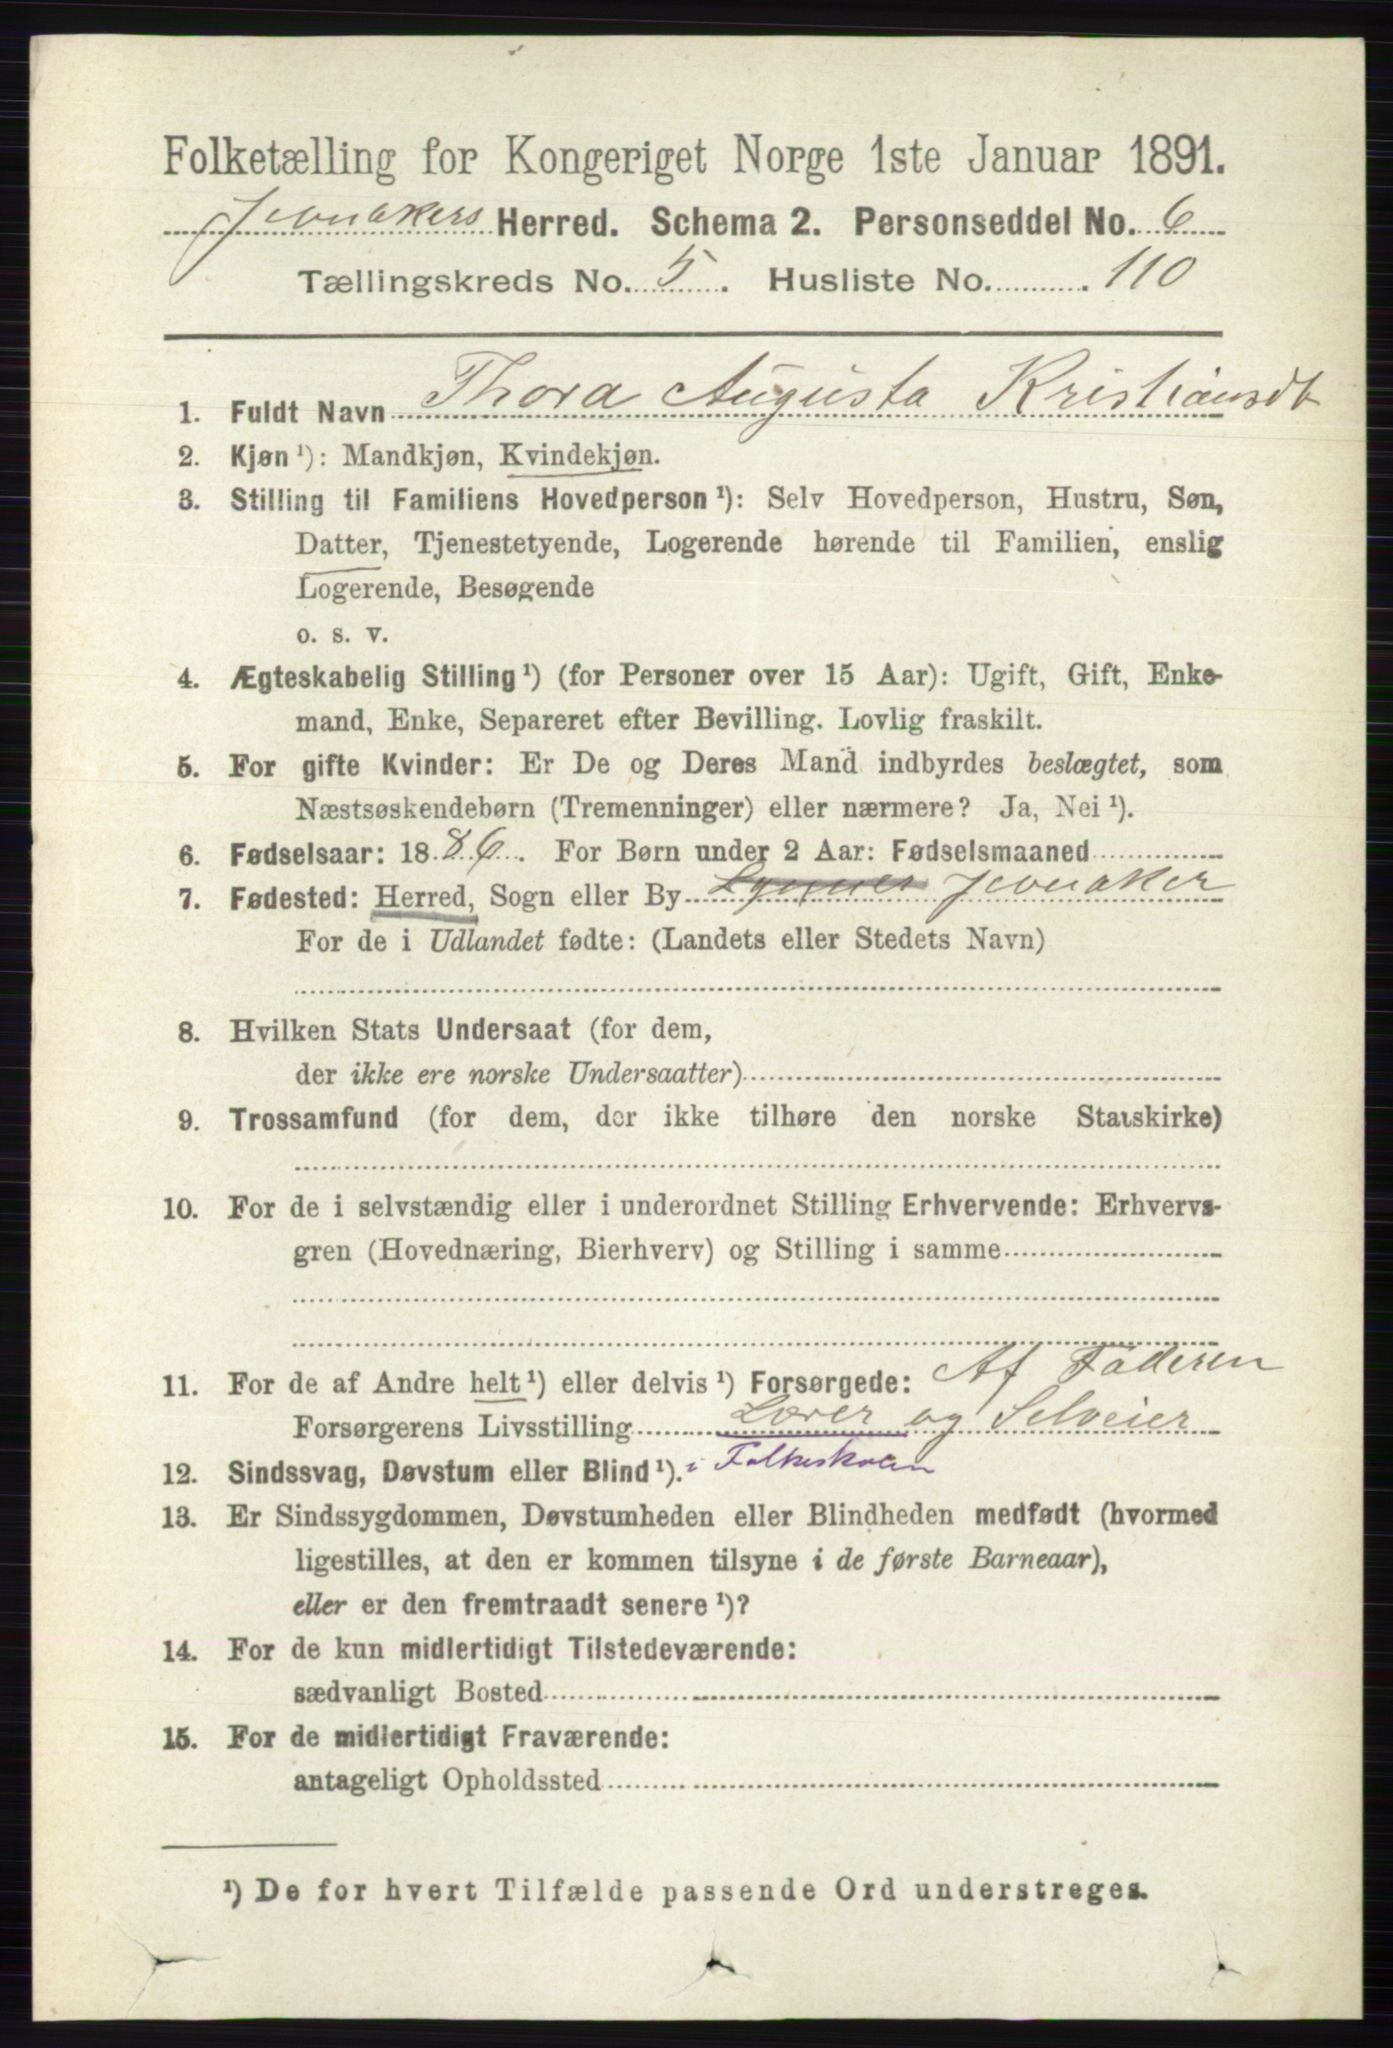 Folketælling for Kongeriget Norge 1ste Januar 1891.
Jevnakers Herred. Schema 2. Personseddel No. 6
Tællingskreds No. 5. Husliste No. 110
1. Fuldt Navn Thora Augusta Kristiansdt
2. Kjøn ¹): Mandkjøn, Kvindekjøn.
3. Stilling til Familiens Hovedperson ¹): Selv Hovedperson, Hustru, Søn,
Datter, Tjenestetyende, Logerende hørende til Familien, enslig
Logerende, Besøgende
o. s. v.
4. Ægteskabelig Stilling ¹) (for Personer over 15 Aar): Ugift, Gift, Enke-
mand, Enke, Separeret efter Bevilling. Lovlig fraskilt.
5. For gifte Kvinder: Er De og Deres Mand indbyrdes beslægtet, som
Næstsøskendebørn (Tremenninger) eller nærmere? Ja, Nei ¹).
6. Fødselsaar: 1886. For Børn under 2 Aar: Fødselsmaaned
7. Fødested: Herred, Sogn eller By Jevnaker
For de i Udlandet fødte: (Landets eller Stedets Navn)
8. Hvilken Stats Undersaat (for dem,
der ikke ere norske Undersaatter)
9. Trossamfund (for dem, der ikke tilhøre den norske Statskirke)
10. For de i selvstændig eller i underordnet Stilling Erhvervende: Erhvervs-
gren (Hovednæring, Bierhverv) og Stilling i samme
11. For de af Andre helt ¹) eller delvis ¹) Forsørgede: Af Faderen
Forsørgerens Livsstilling Lærer og Selveier
12. Sindssvag, Døvstum eller Blind ¹). i Folkeskolen
13. Er Sindssygdommen, Døvstumheden eller Blindheden medfødt (hvormed
ligestilles, at den er kommen tilsyne i de første Barneaar),
eller er den fremtraadt senere ¹)?
14. For de kun midlertidigt Tilstedeværende:
sædvanligt Bosted
15. For de midlertidigt Fraværende:
antageligt Opholdssted
¹) De for hvert Tilfælde passende Ord understreges.